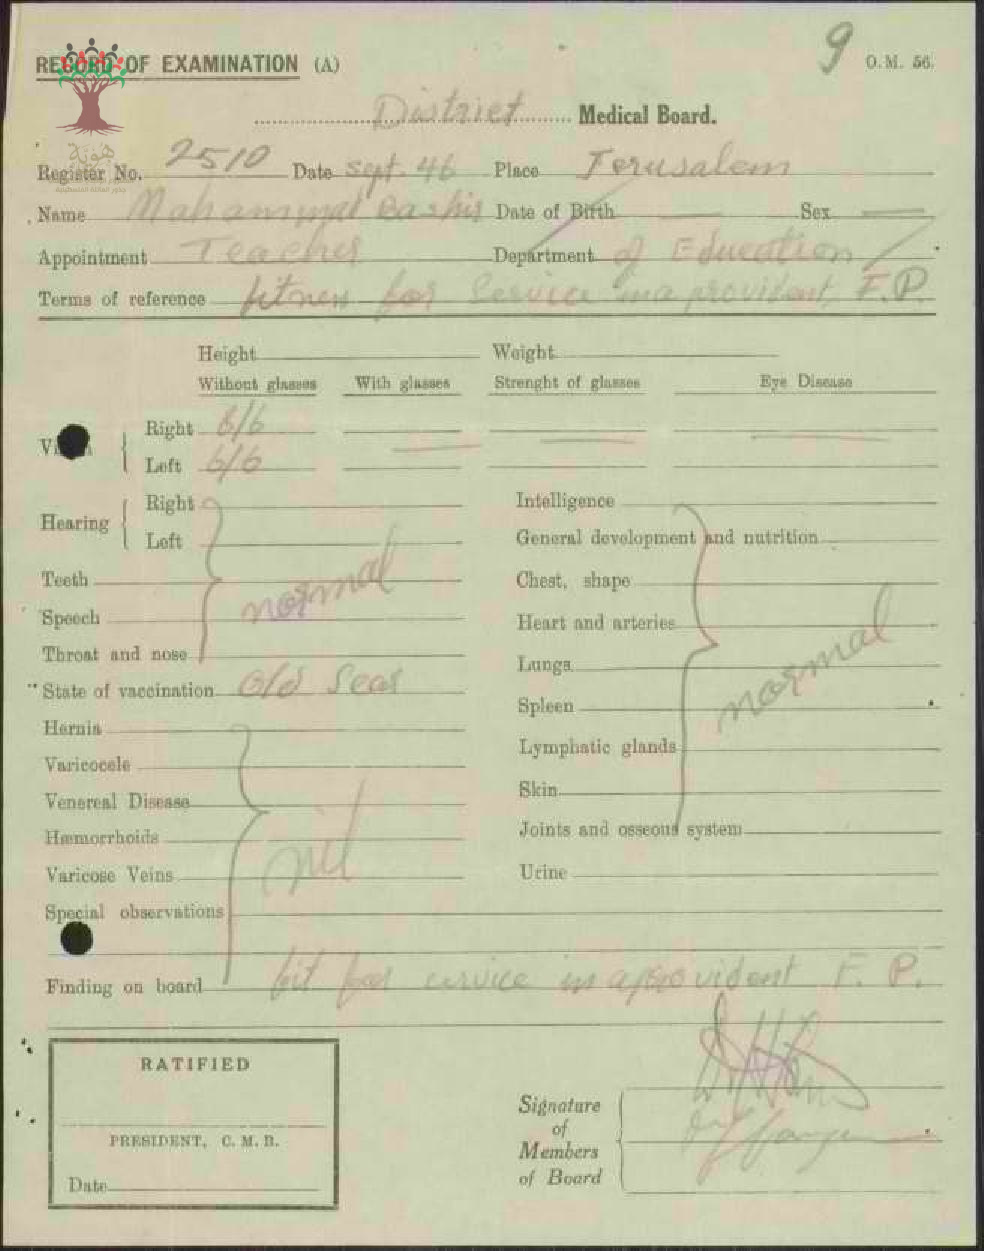 9
RECORD OF EXAMINATION (A) O.M. 56.
District Medical Board.
هوية
Register No. 2510 Date sept. 46 Place Jerusalem
Name Mahammad Bashir Date of Birth — Sex —
Appointment Teacher Department of Education
Terms of reference fitness for Service in a provident F.P.
Height Weight
Without glasses With glasses Strenght of glasses Eye Disease
Vision Right 6/6
Left 6/6
Hearing Right
Left
Teeth
Speech
Throat and nose
normal
State of vaccination Old Scar
Hernia
Varicocele
Venereal Disease
Hæmorrhoids
Varicose Veins
nil
Intelligence
General development and nutrition
Chest, shape
Heart and arteries
Lungs
Spleen
Lymphatic glands
Skin
Joints and osseous system
normal
Urine
Special observations
Finding on board fit for service in a provident F. P.
RATIFIED
PRESIDENT, C. M. B.
Date
Signature
of
Members
of Board